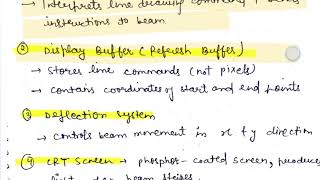 → Interprets line drawing commands & sends
instructions to beam
② Display Buffer (Refresh Buffer)
→ Stores line commands (not pixels)
→ contains coordinates of start and end points
③ Deflection system
→ controls beam movement in x & y direction
④ CRT Screen → phosphor-coated screen, produces
beam strikes.